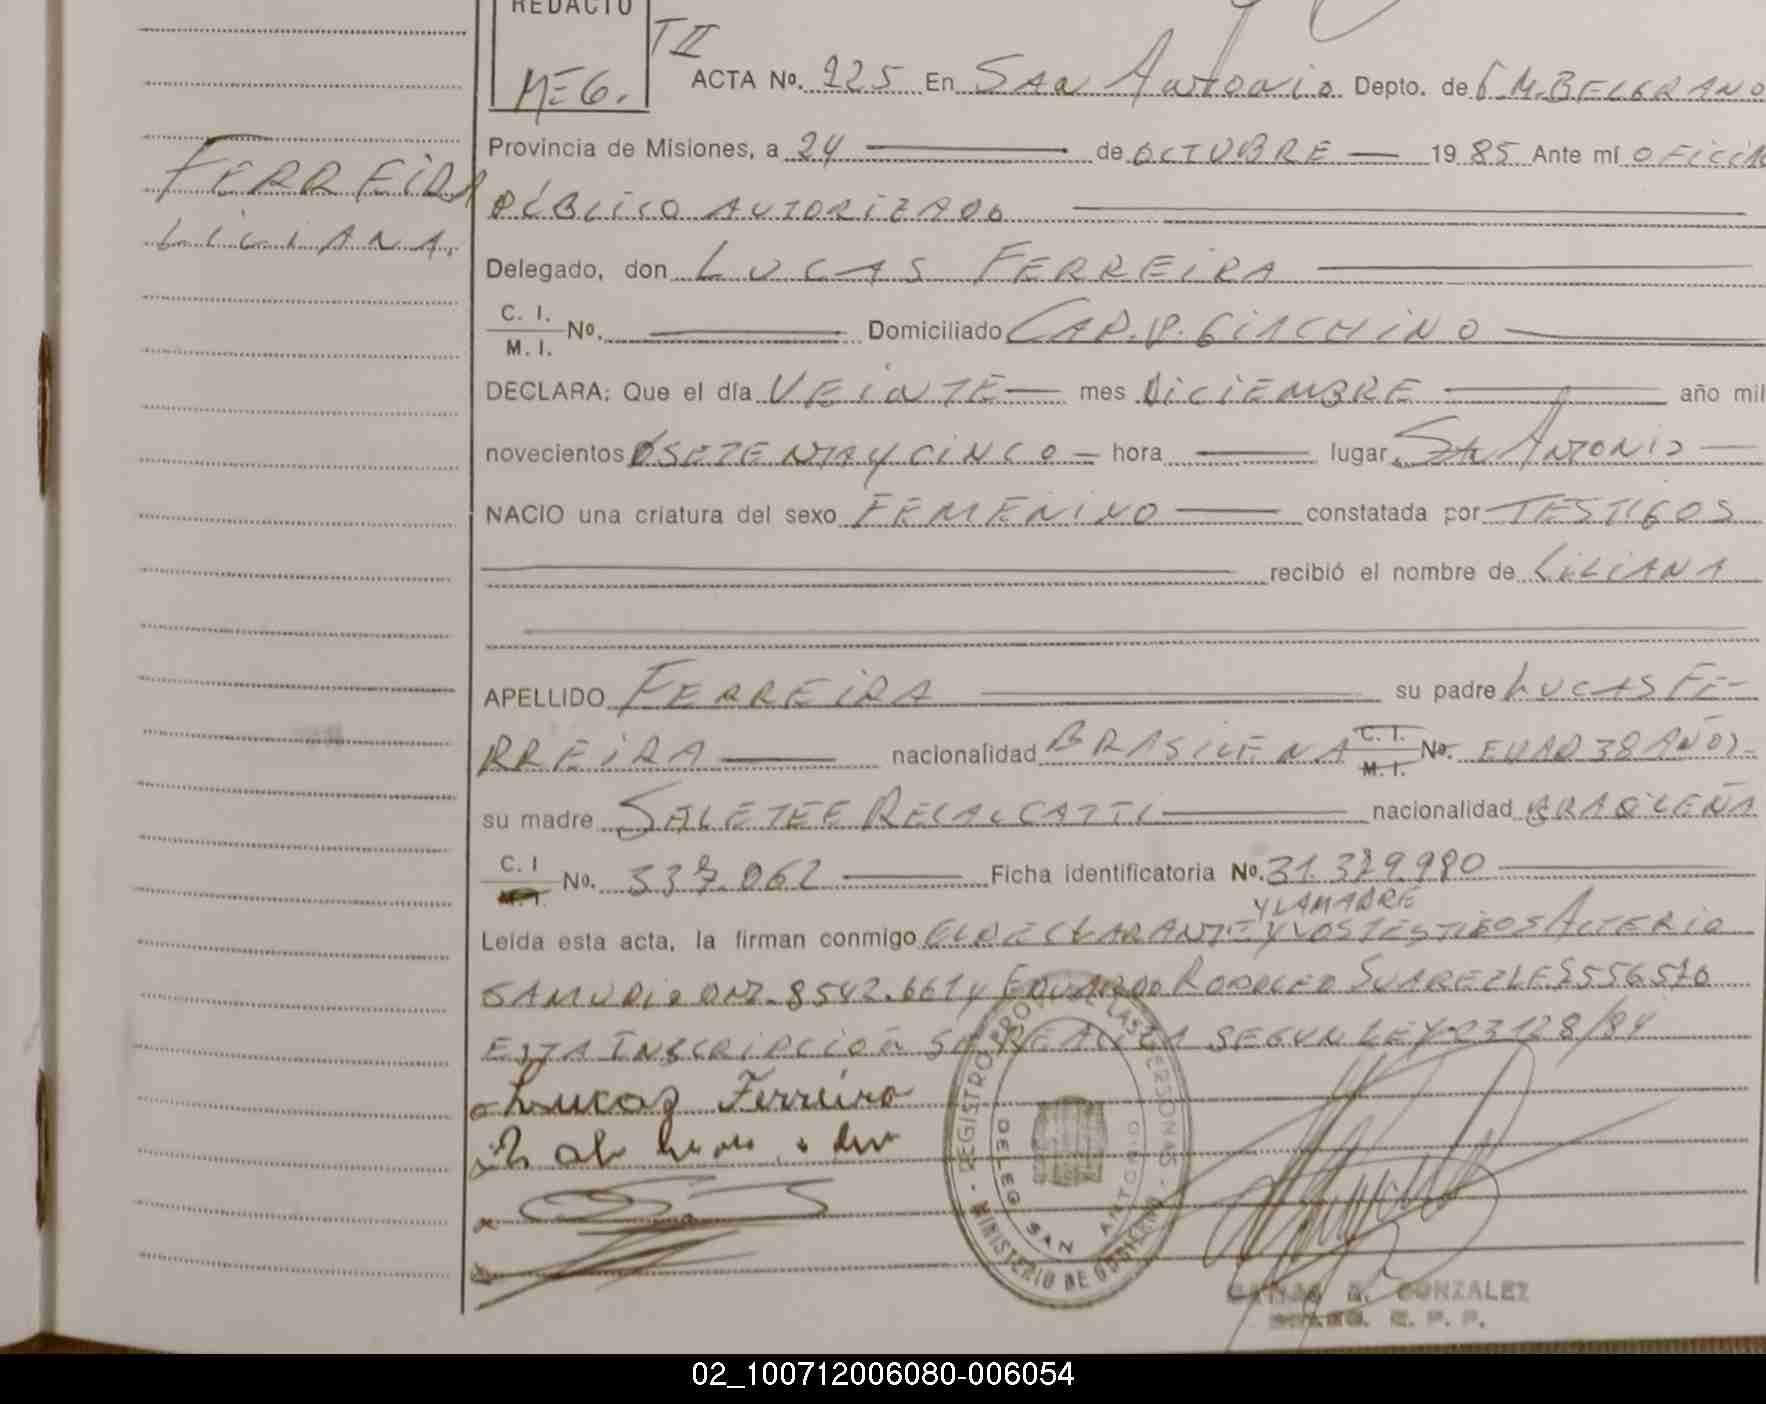 REDACTO
MEG.
T II
ACTA Nº. 225 En San Antonio Depto. de G.M.BELGRANO
Provincia de Misiones, a 24 de OCTUBRE 1985 Ante mí OFICIAL
PÚBLICO AUTORIZADO
FERREIRA
LILIANA.
Delegado, don LUCAS FERREIRA
C. I.
M. I. Nº. Domiciliado CAP.P.GIACHINO
DECLARA: Que el día VEINTE mes DICIEMBRE año mil
novecientos SETENTA Y CINCO hora lugar Sn ANTONIO
NACIO una criatura del sexo FEMENINO constatada por TESTIGOS
recibió el nombre de LILIANA
APELLIDO FERREIRA su padre LUCAS FE-
RREIRA nacionalidad BRASILENA C. I. M. I. Nº. EDAD 38 AÑOS
su madre SALETEE nacionalidad BRASILEÑA
C. I Nº. 337.062 Ficha identificatoria Nº. 31.329.980
Y LA MADRE
Leída esta acta, la firman conmigo EL DECLARANTE Y LOS TESTIGOS ALTERIO
SAMUDIO DNI. 8542.661 y EDUARDO RODOLFO SUAREZ LE. 8556570
ESTA INSCRIPCIÓN SE REALIZA SEGUN LEY 23128/84
Lucas Ferreira
REGISTRO PROV. DE LAS PERSONAS
DELEG. SAN ANTONIO
MINISTERIO DE GOBIERNO
GONZALEZ
02_100712006080-006054